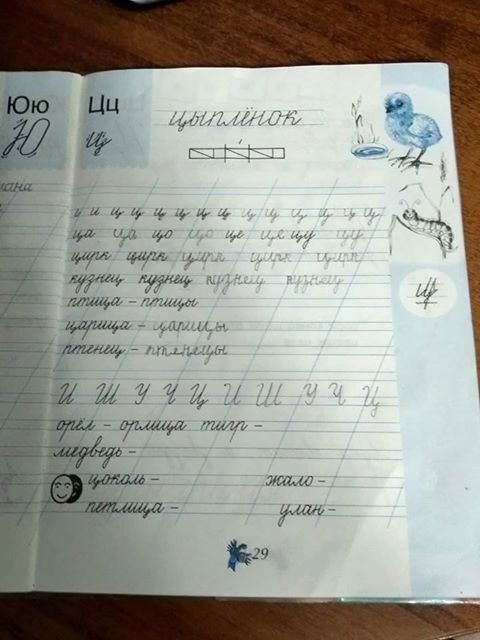 Юю
Ю
Цц
ц
цыплёнок
мана
и и ц ц ц ц ц ц ц ц ц ц ц ц
ца ца цо цо це це цу цу
цирк цирк цирк цирк цирк
кузнец кузнец кузнец кузнец
птица – птицы
царица – царицы
птенец – птенецы
И Ш У Ч Ц И Ш У Ч Ц
орёл – орлица тигр –
медведь –
цоколь – жало –
петлица – улан –
29